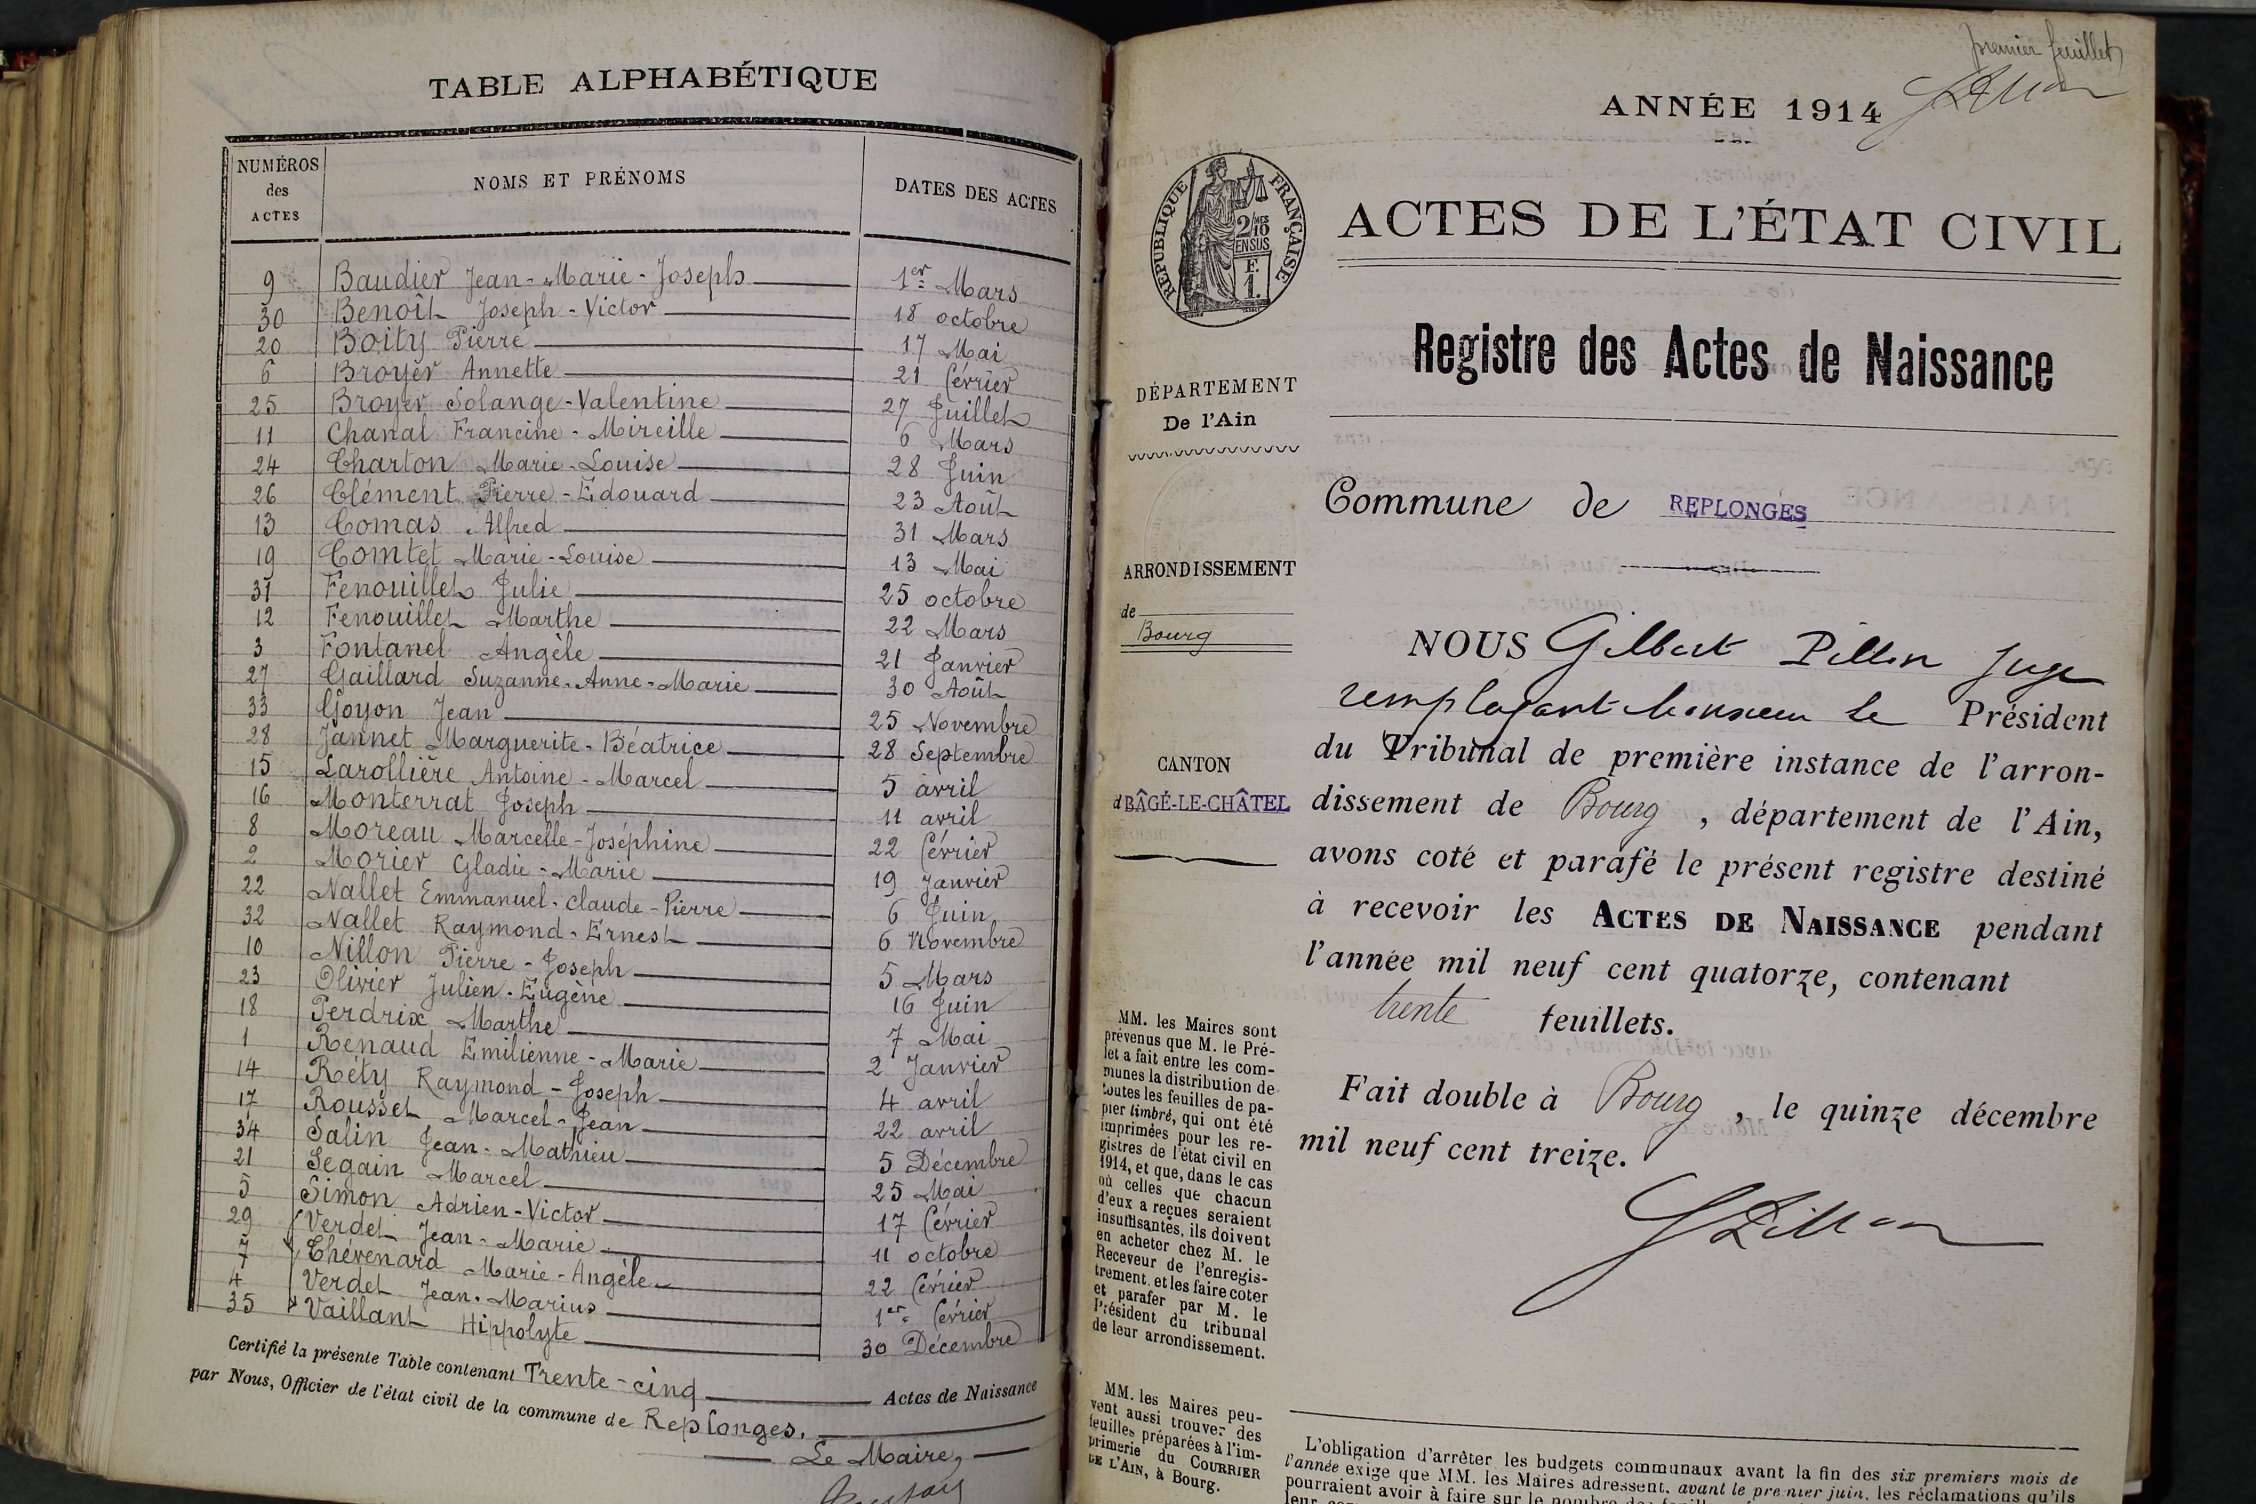 TABLE ALPHABÉTIQUE
NUMÉROS des ACTES NOMS ET PRÉNOMS DATES DES ACTES
9 Baudier Jean-Marie-Joseph 1er Mars
30 Benoît Joseph-Victor 18 octobre
20 Boity Pierre 17 Mai
6 Broyer Annette 21 Février
25 Broyer Solange-Valentine 27 Juillet
11 Chanal Francine-Mireille 6 Mars
24 Charton Marie-Louise 28 Juin
26 Clément Pierre-Edouard 23 Août
13 Comas Alfred 31 Mars
19 Comtet Marie-Louise 13 Mai
31 Fenouillet Julie 25 octobre
12 Fenouillet Marthe 22 Mars
3 Fontanel Angèle 21 Janvier
27 Gaillard Suzanne-Anne-Marie 30 Août
33 Goyon Jean 25 Novembre
28 Jannet Marguerite-Béatrice 28 Septembre
15 Larollière Antoine-Marcel 5 avril
16 Monterrat Joseph 11 avril
8 Moreau Marcelle-Joséphine 22 Février
2 Morier Gladie-Marie 19 Janvier
22 Nallet Emmanuel-Claude-Pierre 6 Juin
32 Nallet Raymond-Ernest 6 Novembre
10 Nillon Pierre-Joseph 5 Mars
23 Olivier Julien-Eugène 16 Juin
18 Perdrix Marthe 7 Mai
1 Renaud Emilienne-Marie 2 Janvier
14 Réty Raymond-Joseph 4 avril
17 Rousset Marcel-Jean 22 avril
34 Salin Jean-Mathieu 5 Décembre
21 Segain Marcel 25 Mai
5 Simon Adrien-Victor 17 Février
29 Verdet Jean-Marie 11 octobre
7 Thévenard Marie-Angèle 22 Février
4 Verdet Jean-Marius 1er Février
35 Vaillant Hippolyte 30 Décembre
Certifié la présente Table contenant Trente-cinq Actes de Naissance
par Nous, Officier de l'état civil de la commune de Replonges.
Le Maire,
premier feuillet
ANNÉE 1914
RÉPUBLIQUE FRANÇAISE
2/MES 10
EN SUS
F.
1.
ACTES DE L'ÉTAT CIVIL
Registre des Actes de Naissance
DÉPARTEMENT
De l'Ain
Commune de REPLONGES
ARRONDISSEMENT
de
Bourg
CANTON
d BÂGÉ-LE-CHÂTEL
NOUS Gilbert Pillon Juge
remplaçant Monsieur le Président
du Tribunal de première instance de l'arron-
dissement de Bourg, département de l'Ain,
avons coté et parafé le présent registre destiné
à recevoir les ACTES DE NAISSANCE pendant
l'année mil neuf cent quatorze, contenant
trente feuillets.
Fait double à Bourg, le quinze décembre
mil neuf cent treize.
GPillon
MM. les Maires sont
prévenus que M. le Pré-
fet a fait entre les com-
munes la distribution de
toutes les feuilles de pa-
pier timbré, qui ont été
imprimées pour les re-
gistres de l'état civil en
1914, et que, dans le cas
où celles que chacun
d'eux a reçues seraient
insuffisantes, ils doivent
en acheter chez M. le
Receveur de l'enregis-
trement, et les faire coter
et parafer par M. le
Président du tribunal
de leur arrondissement.
MM. les Maires peu-
vent aussi trouver des
feuilles préparées à l'im-
primerie du COURRIER
DE L'AIN, à Bourg.
L'obligation d'arrêter les budgets communaux avant la fin des six premiers mois de
l'année exige que MM. les Maires adressent, avant le premier juin, les réclamations qu'ils
pourraient avoir à faire sur le nombre